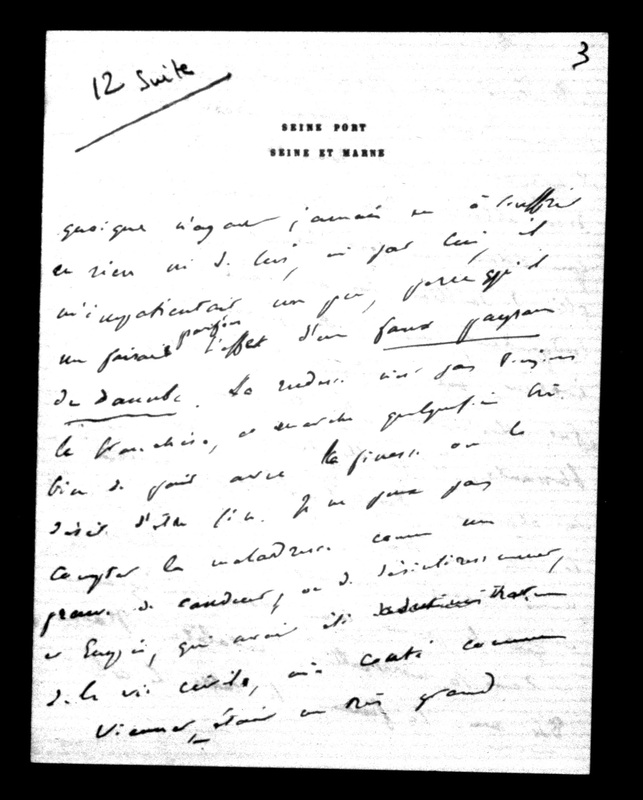 12 suite
3
SEINE PORT
SEINE ET MARNE
quoique n'ayant jamais eu à souffrir
en rien ni de lui, ni par lui, il
m'impatientait un peu, parce qu'il
me faisait parfois l'effet d'un faux paysan
du Danube. La rudesse n'est pas toujours
la franchise, et marche quelquefois très
bien de pair avec la finesse ou le
désir d'être fin. Je ne peux pas
compter la maladresse comme une
preuve de candeur, ou de désintéressement,
et Empis, qui avait été
de la vie civile, m'a conté comment
Viennet était un très grand